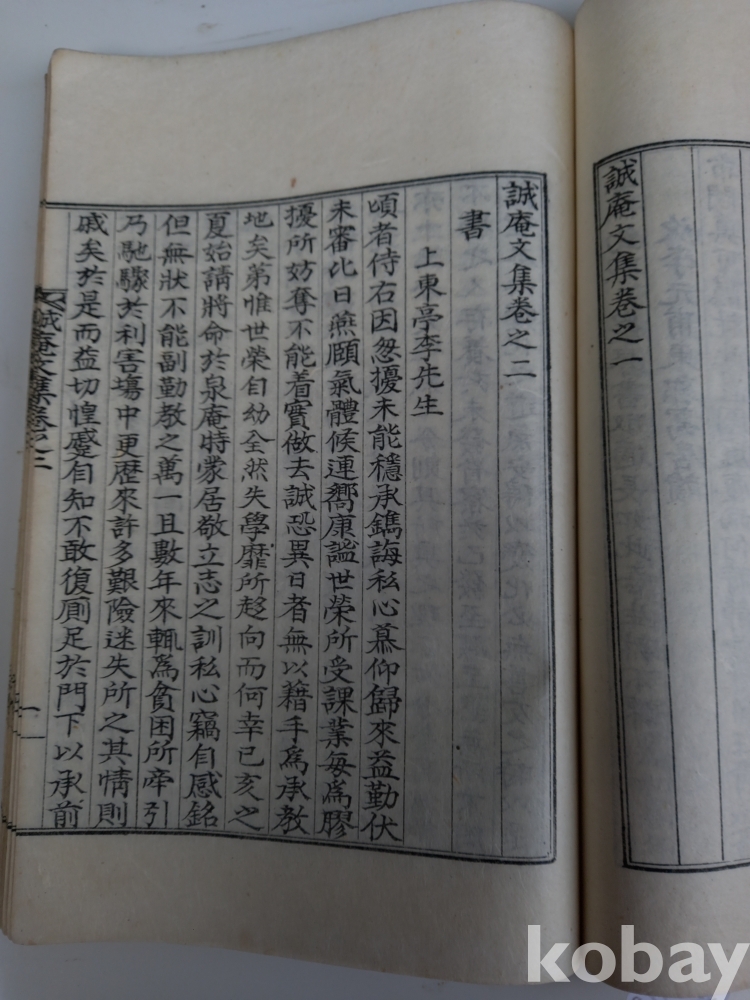 誠庵文集卷之一
誠庵文集卷之二
書
上東亭李先生
頃者侍右因忽擾未能穩承鐫誨私心慕仰歸來益勤伏
未審比日燕頤氣體候連嚮康謐世榮所受課業每爲膠
擾所妨奪不能着實做去誠恐異日者無以藉手爲承教
地矣第惟世榮自幼全然失學靡所趍向而何幸已亥之
夏始請將命於泉庵時蒙居敬立志之訓私心竊自感銘
但無狀不能副勤教之萬一且數年來輒爲貧困所牽引
乃馳驟於利害塲中更歷來許多艱險迷失所之其情則
戚矣於是而益切惶蹙自知不敢復厠足於門下以承前
誠庵文集卷之二
一
kobay